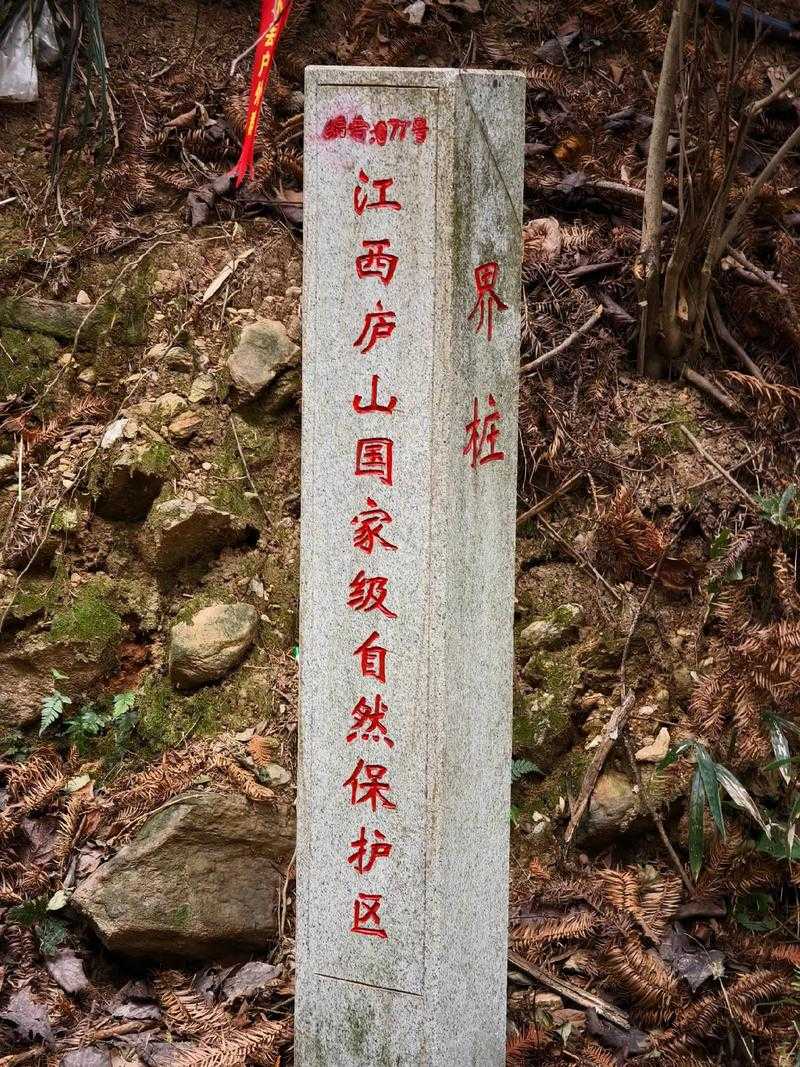 编号:077号
江西庐山国家级自然保护区
界桩